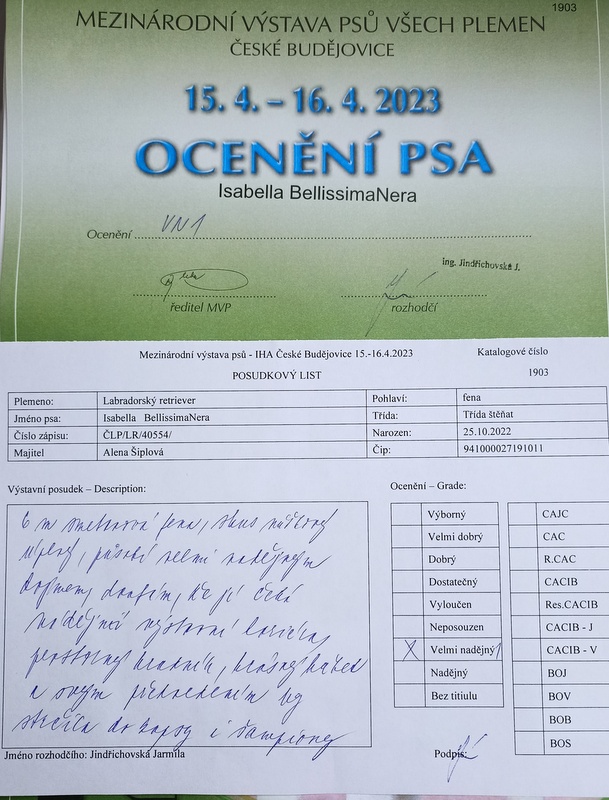 1903
MEZINÁRODNÍ VÝSTAVA PSŮ VŠECH PLEMEN
ČESKÉ BUDĚJOVICE
15. 4. – 16. 4. 2023
OCENĚNÍ PSA
Isabella BellissimaNera
Ocenění VN1
ing. Jindřichovská J.
ředitel MVP rozhodčí
Mezinárodní výstava psů - IHA České Budějovice 15.-16.4.2023 Katalogové číslo
POSUDKOVÝ LIST 1903
Plemeno: Labradorský retriever Pohlaví: fena
Jméno psa: Isabella BellissimaNera Třída: Třída štěňat
Číslo zápisu: ČLP/LR/40554/ Narozen: 25.10.2022
Majitel Alena Šiplová Čip: 941000027191011
Výstavní posudek – Description: Ocenění – Grade:
Výborný CAJC
Velmi dobrý CAC
Dobrý R.CAC
Dostatečný CACIB
Vyloučen Res.CACIB
Neposouzen CACIB - J
X Velmi nadějný 1 CACIB - V
Nadějný BOJ
Bez titulu BOV
BOB
BOS
6 m smetanová fena, skus nůžkový
úplný, působí velmi nadějným
dojmem, doufám, že jí čeká
nadějná výstavní kariéra,
hlavu, krásný
a svým předvedením by
strčila do kapsy i šampiony
Jméno rozhodčího: Jindřichovská Jarmila Podpis: